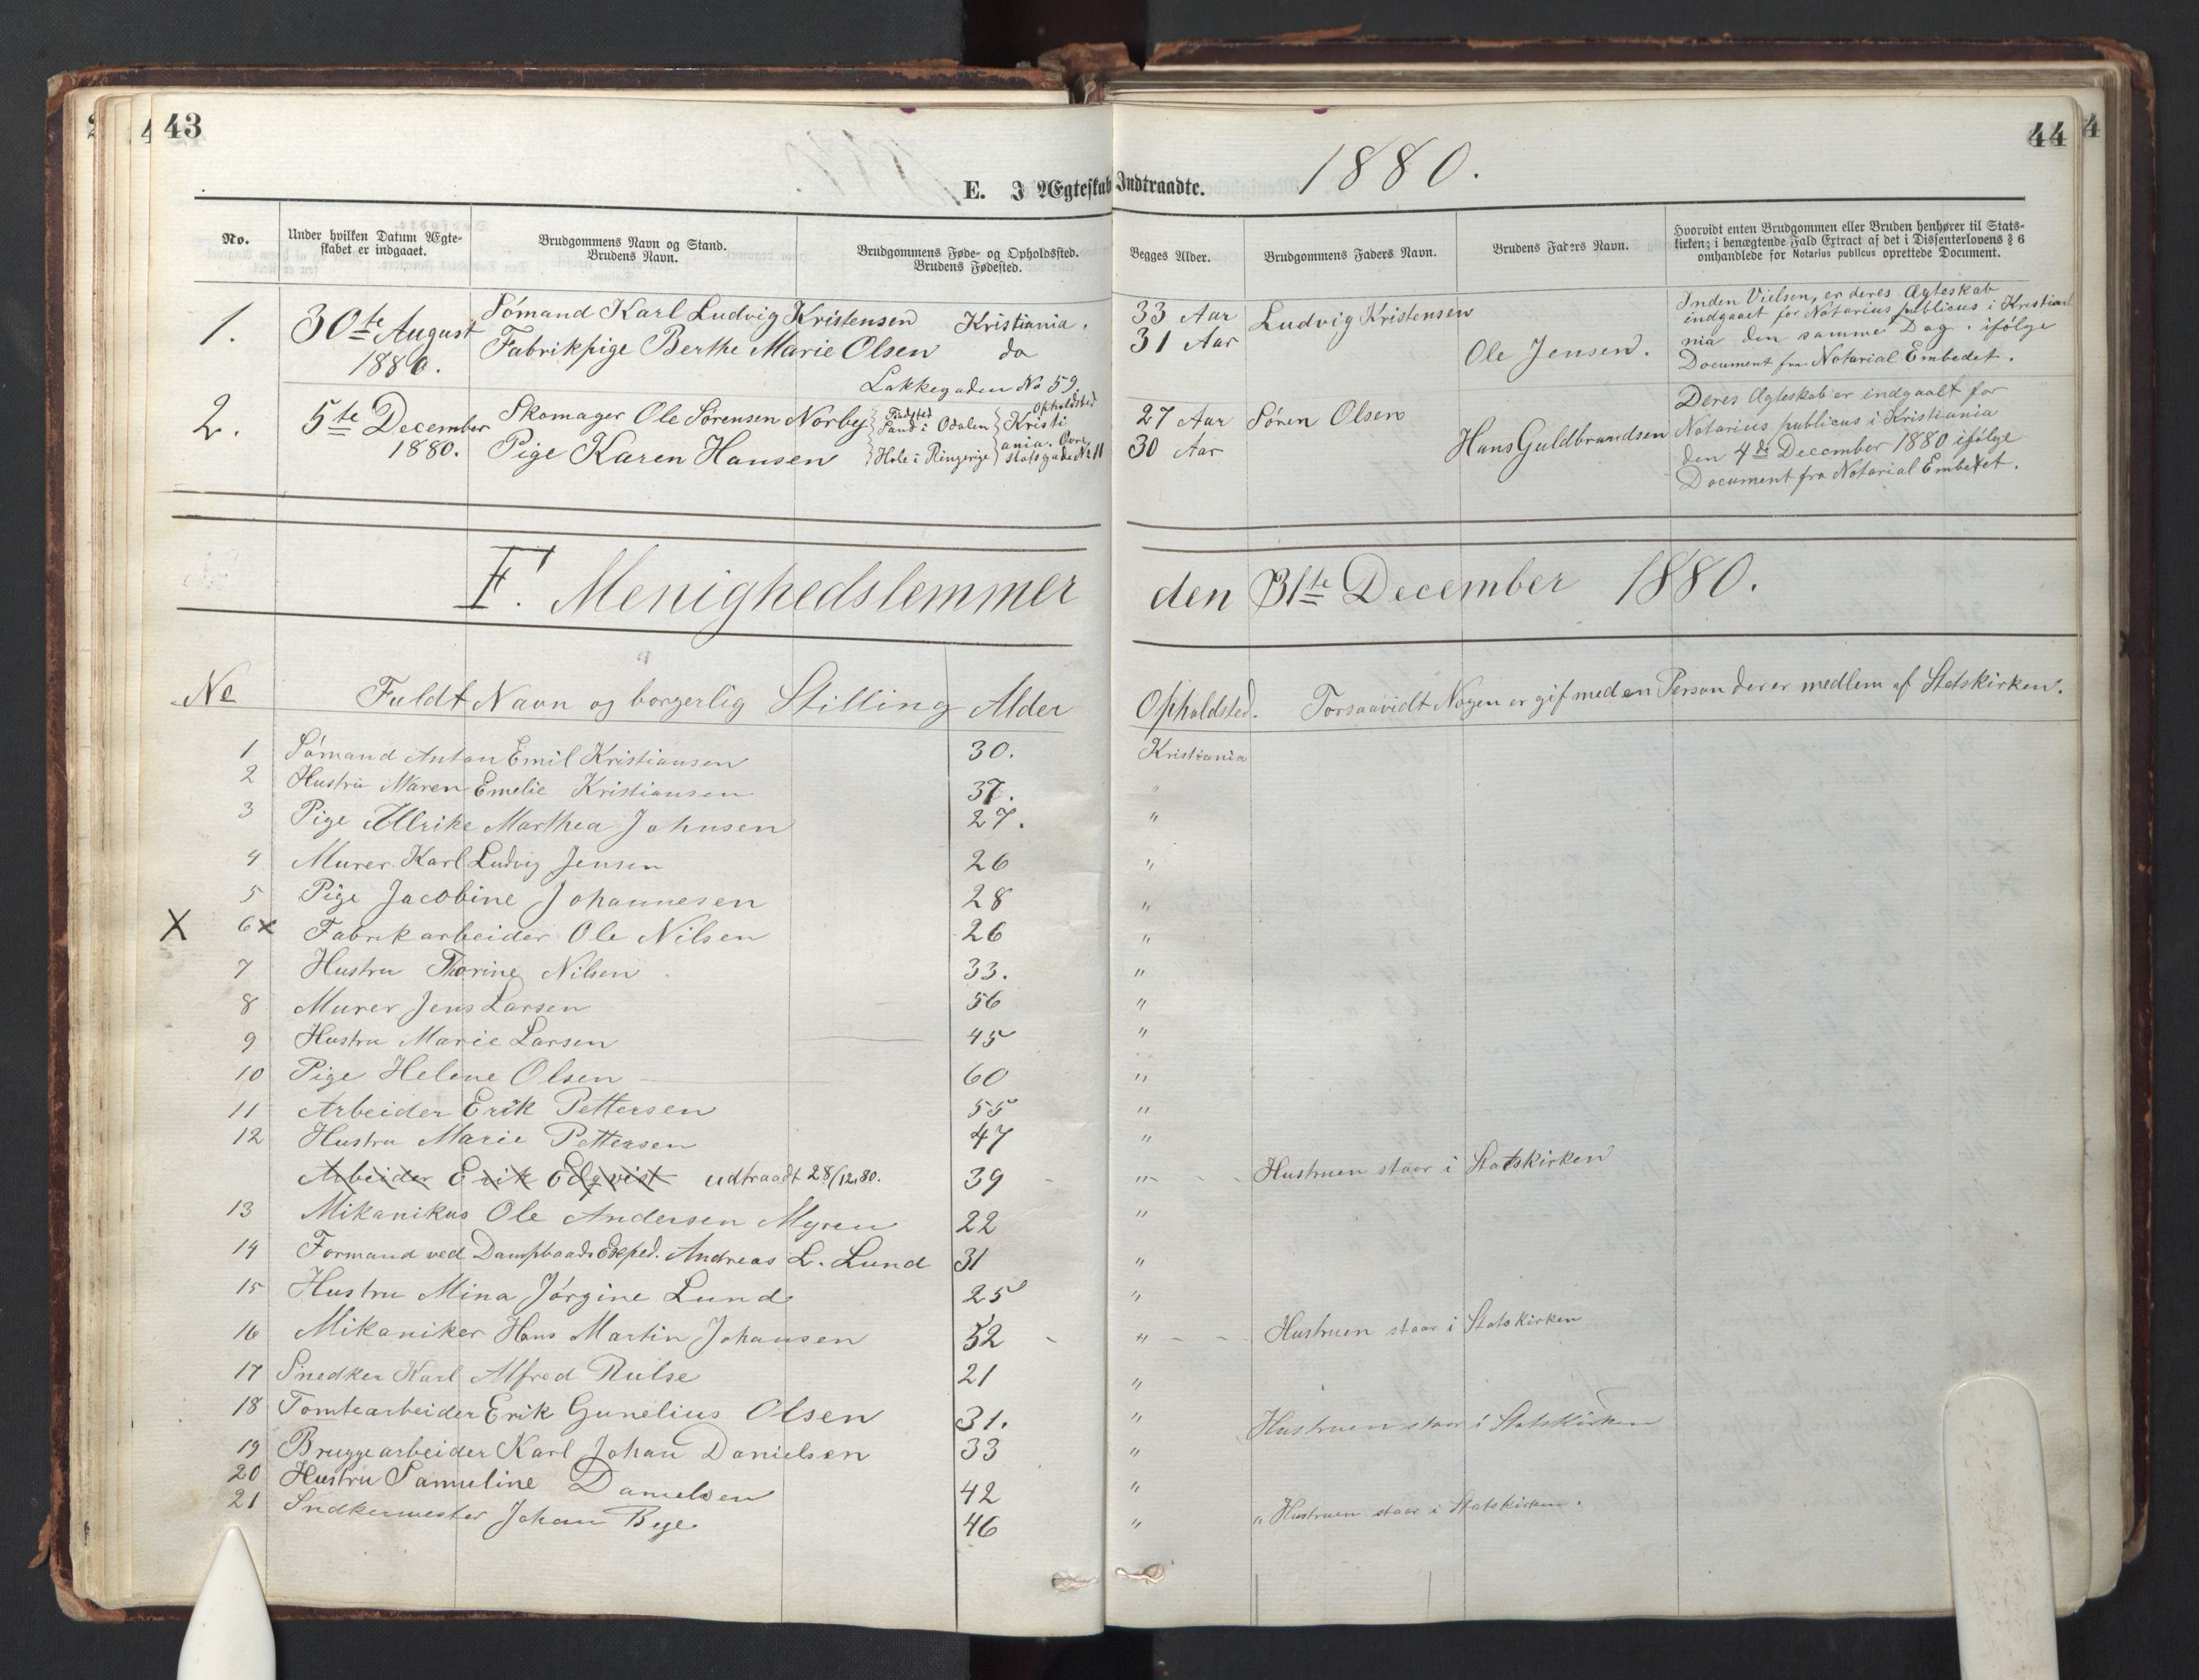 43
44
1880.
E. I Ægteskab Indtraadte.
No.
Under hvilken Datum Ægte-
skabet er indgaaet.
Brudgommens Navn og Stand.
Brudens Navn.
Brudgommens Føde- og Opholdssted.
Brudens Fødested.
Begges Alder.
Brudgommens Faders Navn.
Brudens Faders Navn.
Hvorvidt enten Brudgommen eller Bruden henhører til Stats-
kirken; i benægtende Fald Extract af det i Dissenterlovens § 6
omhandlede for Notarius publicus oprettede Document.
1. 30te August 1880. Sømand Karl Ludvig Kristensen Kristiania. 33 Aar Ludvig Kristensen
Fabrikpige Berthe Marie Olsen do 31 Aar Ole Jensen.
Lakkegaden No 59
Inden Vielsen, er deres Ægteskab
indgaaet for Notarius publicus i Kristia
nia den samme Dag. ifølge
Document fra Notarial Embedet.
2. 5te December 1880. Skomager Ole Sørensen Norbye Fødsted Sand i Odalen Opholdsted Kristi 27 Aar Søren Olsen
Pige Karen Hansen Hole i Ringerige ania. Øvre Slotsgade No 11 30 Aar Hans Guldbrandsen
Deres Ægteskab er indgaalt for
Notarius publicus i Kristiania
den 4de December 1880 ifølge
Document fra Notarial Embetet.
F. Menighedslemmer den 31te December 1880.
No Fuldt Navn og borgerlig Stilling Alder Opholdsted. Forsaavidt Nogen er gif med en Person der er medlem af Statskirken.
1 Sømand Anton Emil Kristiansen 30. Kristiania
2 Hustru Maren Emelie Kristiansen 37. "
3 Pige Ulrike Marthea Johnsen 27. "
4 Murer Karl Ludvig Jensen 26 "
5 Pige Jacobine Johannesen 28 "
X 6 x Fabrikarbeider Ole Nilsen 26 "
7 Hustru Thorine Nilsen 33. "
8 Murer Jens Larsen 56 "
9 Hustru Marie Larsen 45 "
10 Pige Helene Olsen 60 "
11 Arbeider Erik Pettersen 55 "
12 Hustru Marie Pettersen 47 "
Arbeider Erik Edqvist udtraadt 28/12.80. 39 " Hustruen staar i Statskirken
13 Mikanikus Ole Andersen Myren 22 "
14 Formand ved Dampbaads Exped. Andreas L. Lund 31 "
15 Hustru Mina Jørgine Lund 25 "
16 Mikaniker Hans Martin Johansen 52 " Hustruen staar i Statskirken
17 Snedker Karl Alfred Rulse 21 "
18 Tomtearbeider Erik Gunelius Olsen 31. " Hustruen staar i Statskirken
19 Bryggearbeider Karl Johan Danielsen 33 "
20 Hustru Samuline Danielsen 42 "
21 Sndkermester Johan Bye 46 " " Hustruen staar i Statskirken.